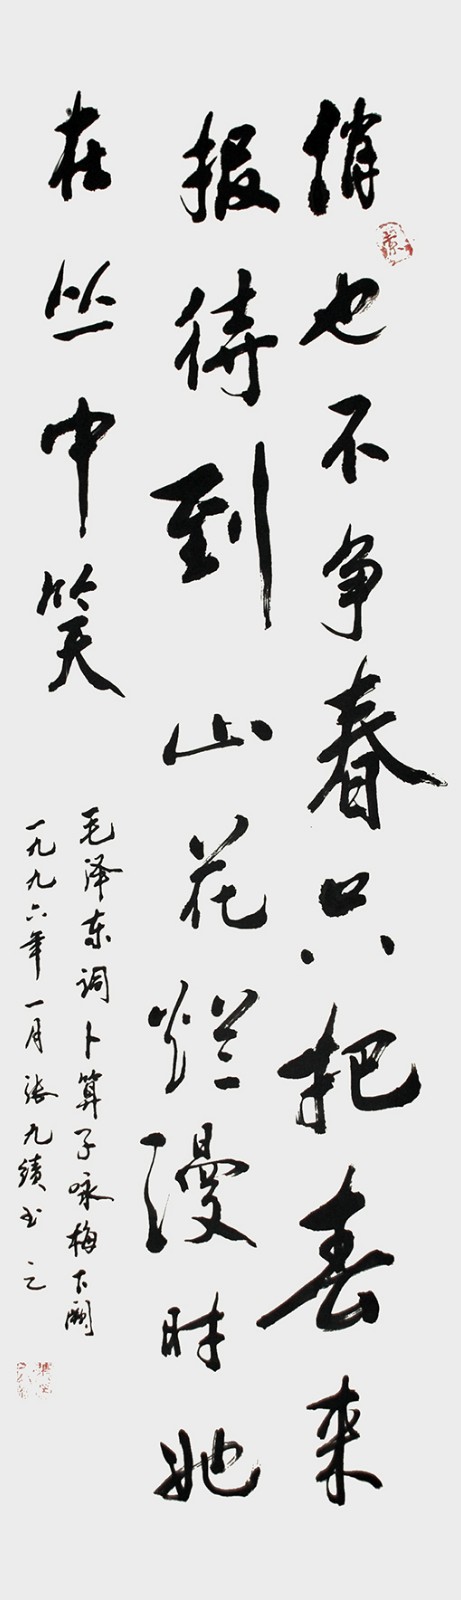 俏也不争春只把春来
报待到山花烂漫时她
在丛中笑
毛泽东词卜算子咏梅下阕
一九九六年一月张九绩书之